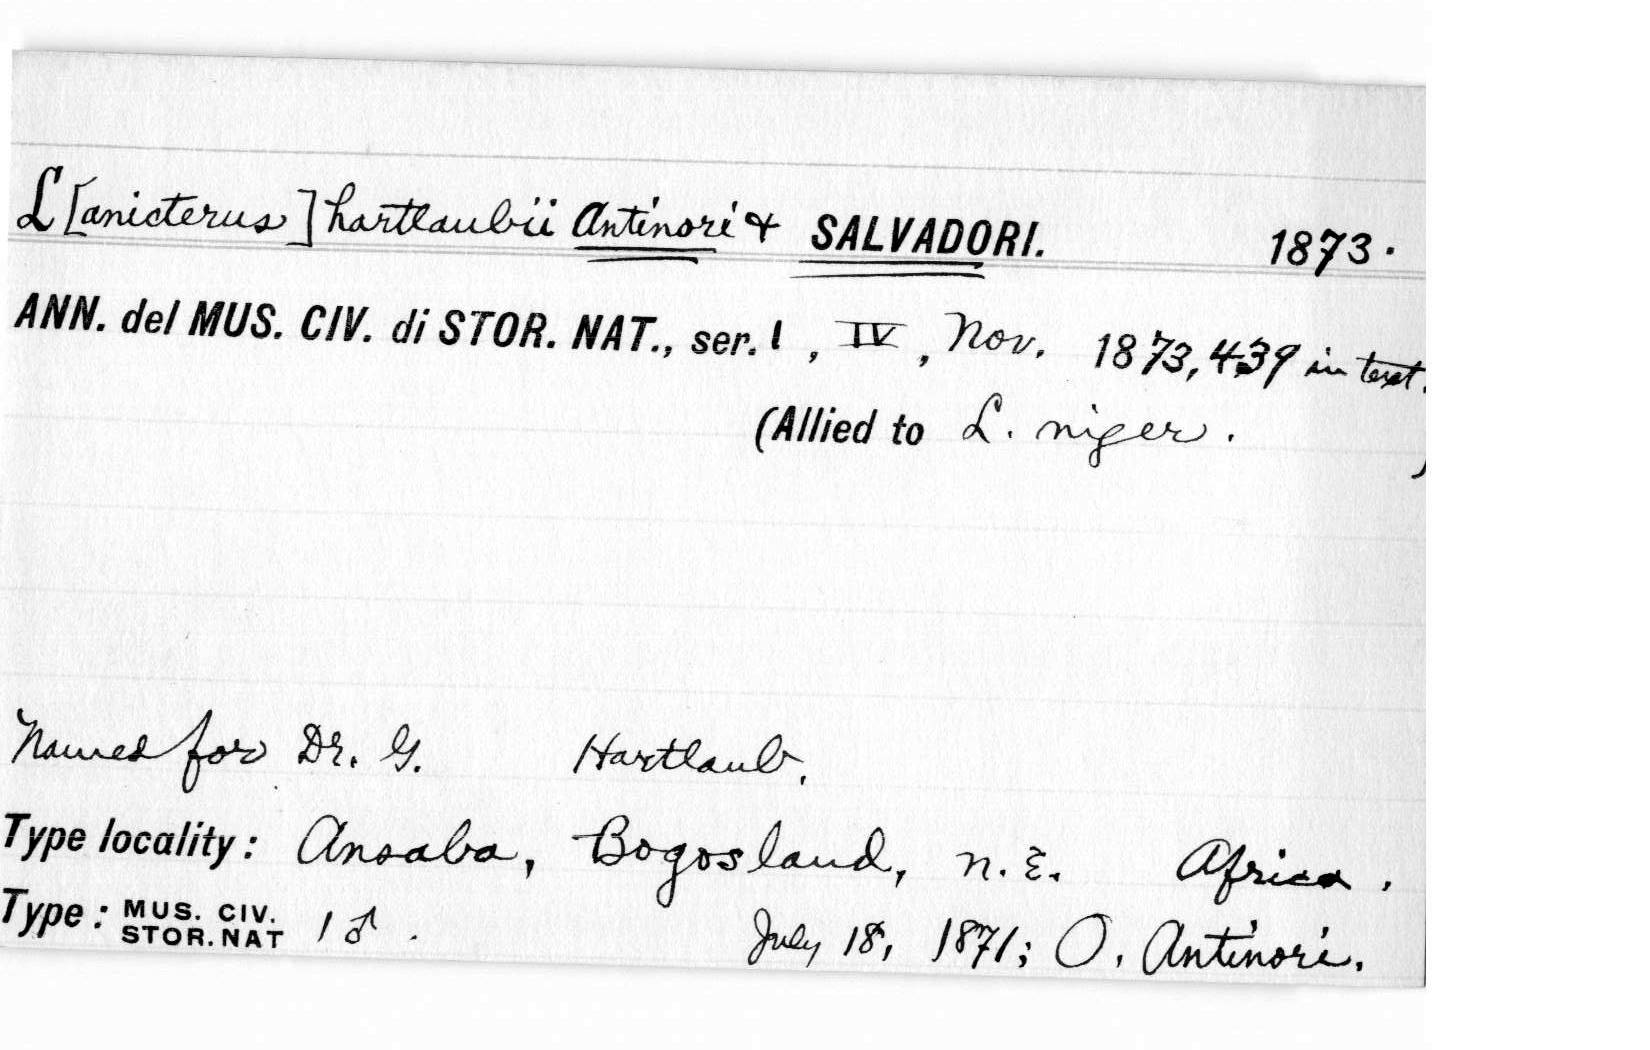 L[anicterus] hartlaubii Antinori & SALVADORI. 1873.
ANN. del MUS. CIV. di STOR. NAT., ser. 1, IV, Nov. 1873, 439 in text.
(Allied to L. niger. )
Named for Dr. G. Hartlaub.
Type locality: Ansaba, Bogosland, n.E. Africa.
Type: MUS. CIV. STOR. NAT 1 ♂. July 18, 1871; O. Antinori.